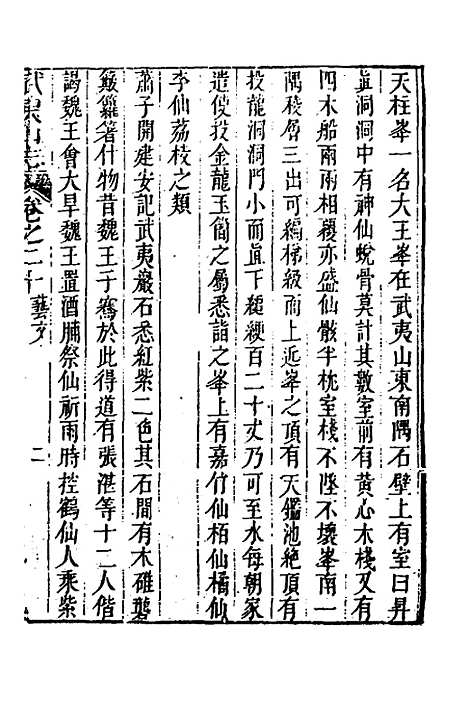 天柱峯一名大王峯在武夷山東南隅石壁上有室曰昇
眞洞洞中有神仙蛻骨莫計其數室前有黃心木棧又有
四木船兩兩相覆亦盛仙骸半枕室棧不墜不壞峯南一
隅稜層三出可編梯級而上近峯之頂有天鑑池絶頂有
投龍洞洞門小而直下縋綆百二十丈乃可至水每朝家
遣使投金龍玉簡之屬悉詣之峯上有嘉竹仙栢仙橘仙
李仙荔枝之類
蕭子開建安記武夷巖石悉紅紫二色其石間有木碓礱
簸籮箸什物昔魏王子騫於此得道有張湛等十二人偕
謁魏王會大旱魏王置酒脯祭仙祈雨時控鶴仙人乘紫
武夷山志 卷之二十 藝文 二